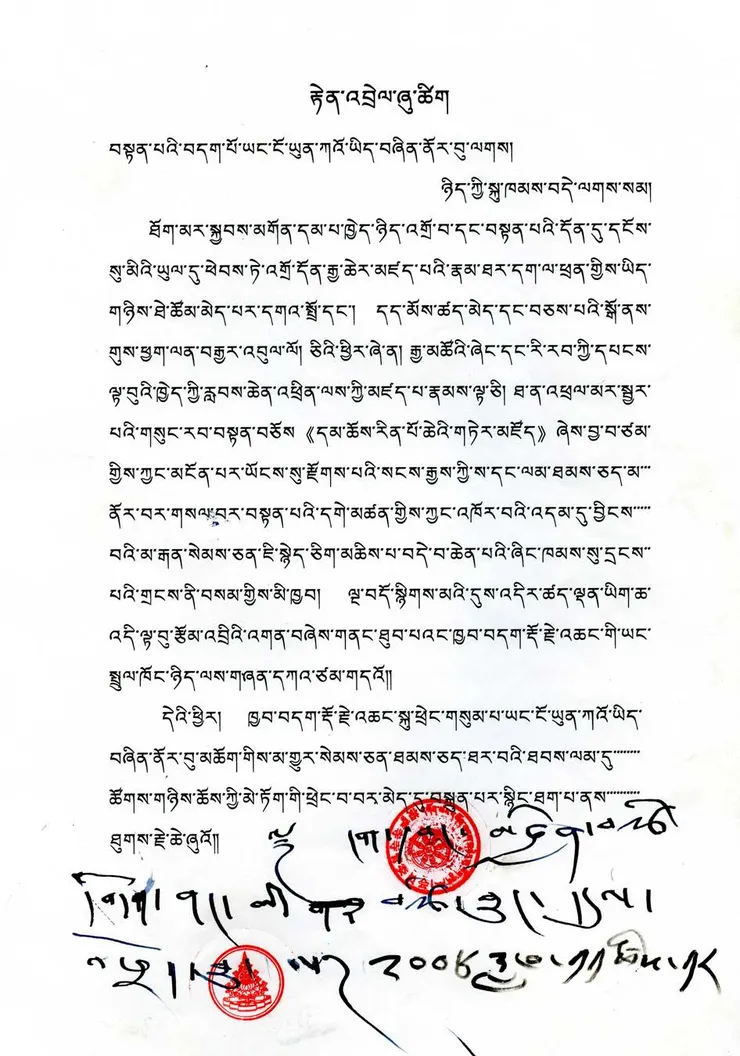 རྟེན་འབྲེལ་ཞུ་ཚིག
བསྟན་པའི་བདག་པོ་ཡང་ངོ་ཡུན་ཀའོ་ཡིད་བཞིན་ནོར་བུ་ལགས།
ཉིད་ཀྱི་སྐུ་ཁམས་བདེ་ལགས་སམ།
ཐོག་མར་སྐྱབས་མགོན་དམ་པ་ཁྱེད་ཉིད་འགྲོ་བ་དང་བསྟན་པའི་དོན་དུ་དངོས་
སུ་མིའི་ཡུལ་དུ་ཕེབས་ཏེ་འགྲོ་དོན་རྒྱ་ཆེར་མཛད་པའི་རྣམ་ཐར་དག་ལ་ཕྲན་གྱིས་ཡིད་
གཉིས་ཐེ་ཚོམ་མེད་པར་དགའ་སྤྲོ་དང་། དད་མོས་ཚད་མེད་དང་བཅས་པའི་སྒོ་ནས་
གུས་ཕྱག་ལན་བརྒྱར་འབུལ་ལོ། ཅིའི་ཕྱིར་ཞེ་ན། རྒྱ་མཚོའི་ཞེང་དང་རི་རབ་ཀྱི་དཔངས་
ལྟ་བུའི་ཁྱེད་ཀྱི་རླབས་ཆེན་འཕྲིན་ལས་ཀྱི་མཛད་པ་རྣམས་ལྟ་ཅི། ཐ་ན་འཕྲལ་མར་སྦྱར་
པའི་གསུང་རབ་བསྟན་བཅོས་《དམ་ཆོས་རིན་པོ་ཆེའི་གཏེར་མཛོད》ཞེས་བྱ་བ་ཙམ་
གྱིས་ཀྱང་མངོན་པར་ཡོངས་སུ་རྫོགས་པའི་སངས་རྒྱས་ཀྱི་ས་དང་ལམ་ཐམས་ཅད་མ་
ནོར་བར་གསལ་བར་བསྟན་པའི་དགེ་མཚན་གྱིས་ཀྱང་འཁོར་བའི་འདམ་དུ་བྱིངས་
བའི་མ་རྒན་སེམས་ཅན་ཇི་སྙེད་ཅིག་མཆིས་པ་བདེ་བ་ཆེན་པའི་ཞིང་ཁམས་སུ་དྲངས་
པའི་གྲངས་ནི་བསམ་གྱིས་མི་ཁྱབ། ལྔ་བདོ་སྙིགས་མའི་དུས་འདིར་ཚད་ལྡན་ཡིག་ཆ་
འདི་ལྟ་བུ་རྩོམ་འབྲིའི་འགན་བཞེས་གནང་ཐུབ་པའང་ཁྱབ་བདག་རྡོ་རྗེ་འཆང་གི་ཡང་
སྤྲུལ་ཁོང་ཉིད་ལས་གཞན་དཀའ་ཙམ་གདའོ༎
དེའི་ཕྱིར། ཁྱབ་བདག་རྡོ་རྗེ་འཆང་སྐུ་ཕྲེང་གསུམ་པ་ཡང་ངོ་ཡུན་ཀའོ་ཡིད་
བཞིན་ནོར་བུ་མཆོག་གིས་མ་གྱུར་སེམས་ཅན་ཐམས་ཅད་ཐར་བའི་ཐབས་ལམ་དུ་
ཚོགས་གཉིས་ཆོས་ཀྱི་མེ་ཏོག་གི་ཕྲེང་བ་བར་མེད་དུ་བསྐྲུན་པར་སྙིང་ཐག་པ་ནས་
ཐུགས་རྗེ་ཆེ་ཞུའོ༎